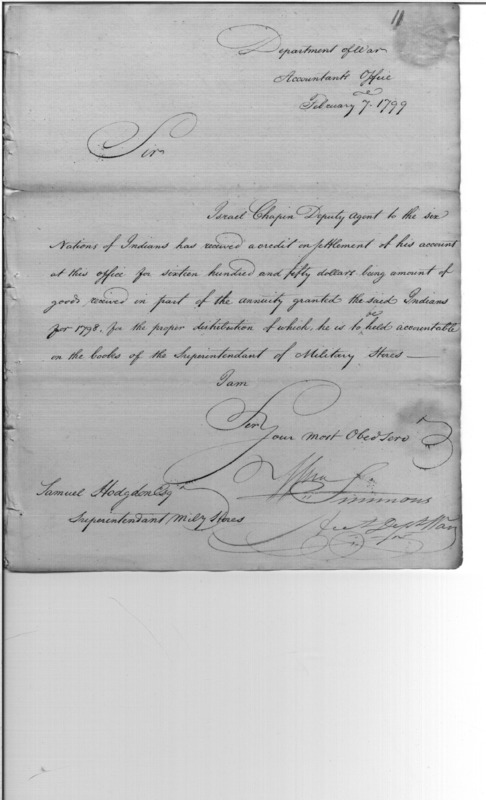 11
Department of War
Accountants Office
February 7. 1799
Sir
Israel Chapin Deputy Agent to the six
Nations of Indians has received a credit on settlement of his account
at this office for sixteen hundred and fifty dollars being amount of
goods received on part of the annuity granted the said Indians
for 1798, for the proper distribution of which, he is to be held accountable
on the books of the Superintendant of Military Stores —
I am
Sir
Your most Obed Serv
Wm Simmons
Acct Dept War
Samuel Hodgdon Esqr
Superintendant Mily Stores